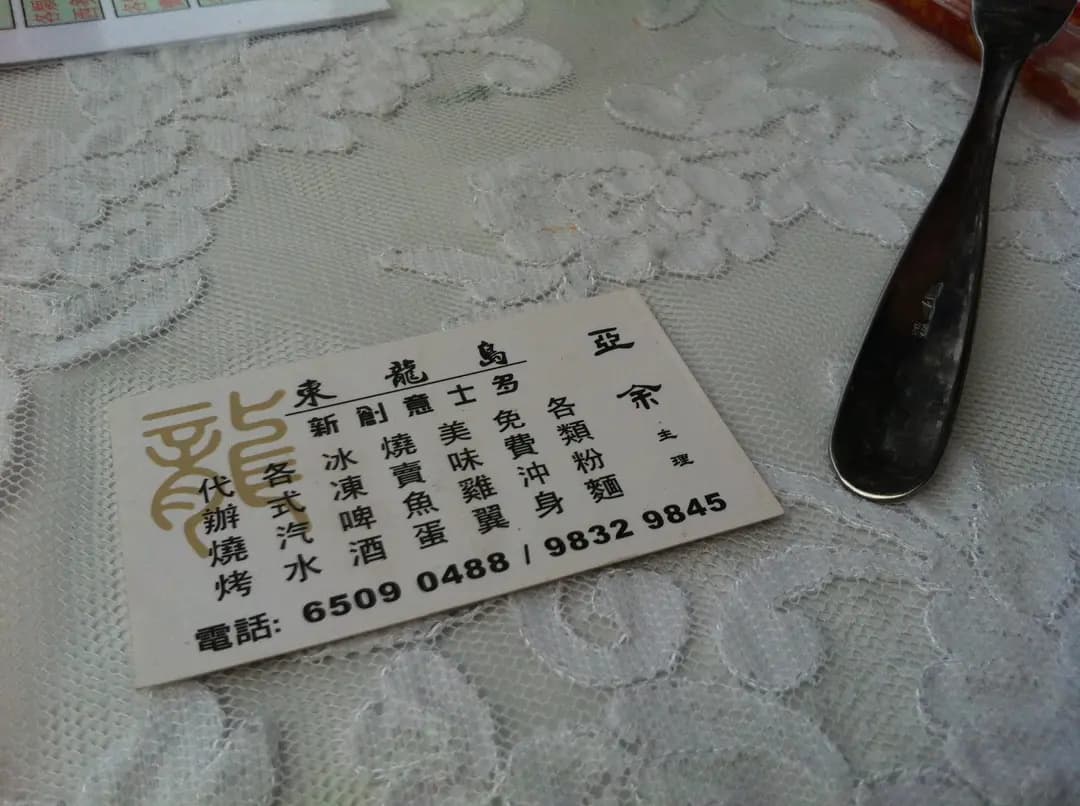 東龍島
新創意士多
亞余
主理
各類粉麵
免費沖身
美味雞翼
燒賣魚蛋
冰凍啤酒
各式汽水
代辦燒烤
龍
電話: 6509 0488 / 9832 9845